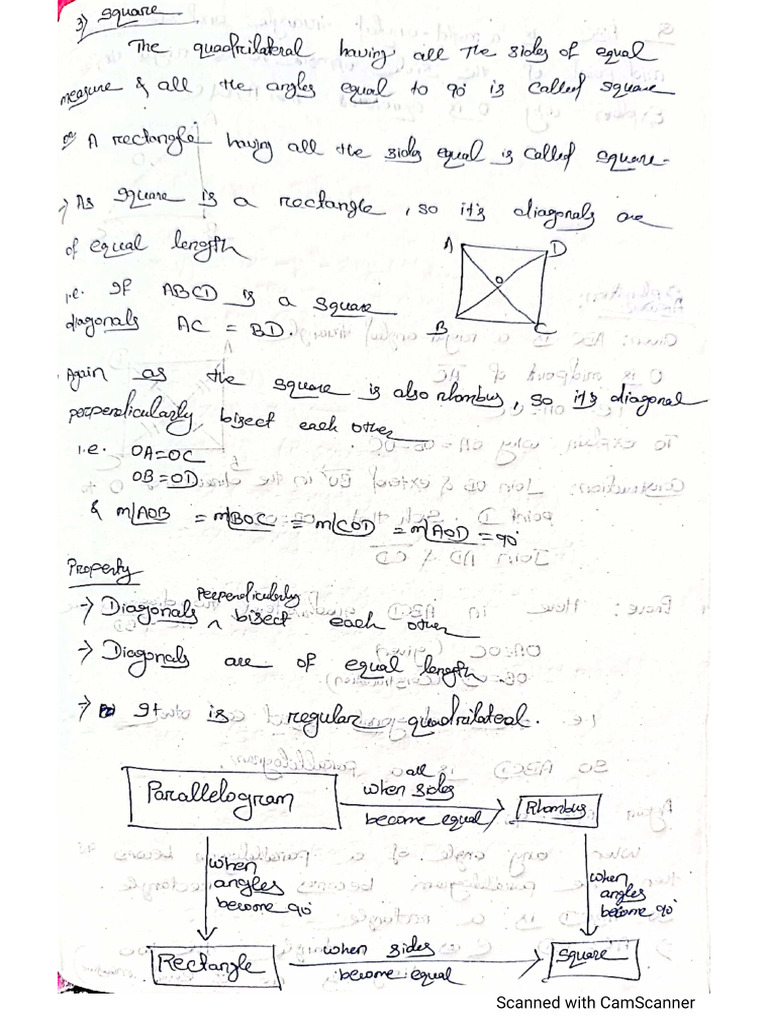 3) Square
The quadrilateral having all The sides of equal
measure & all the angles equal to 90° is called square
or A rectangle having all the sides equal is called square.
→ As square is a rectangle, so it's diagonals are
of equal length
i.e. If ABCD is a square
diagonals AC = BD.
A D
O
B C
Again as the square is also rhombus, so it's diagonal
perpendicularly bisect each other
i.e. OA=OC
OB=OD
& m∠AOB = m∠BOC = m∠COD = m∠AOD = 90°
Property
→ Diagonals ^ perpendicularly bisect each other
→ Diagonals are of equal length.
→ It is regular quadrilateal.
Parallelogram
when all sides
become equal
Rhombus
when
angles
become 90°
when
angles
become 90°
Rectangle
when sides
become equal
Square
Scanned with CamScanner